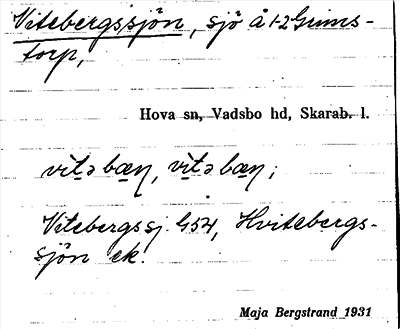 Vitebergssjön, sjö å 1-2 Gums-
torp,
Hova sn, Vadsbo hd, Skarab. l.
vi̱tə bæ̱ɳ, vi̱tə bæɳ;
Vitebergssj G54, Hvitebergs-
sjön ek.
Maja Bergstrand 1931